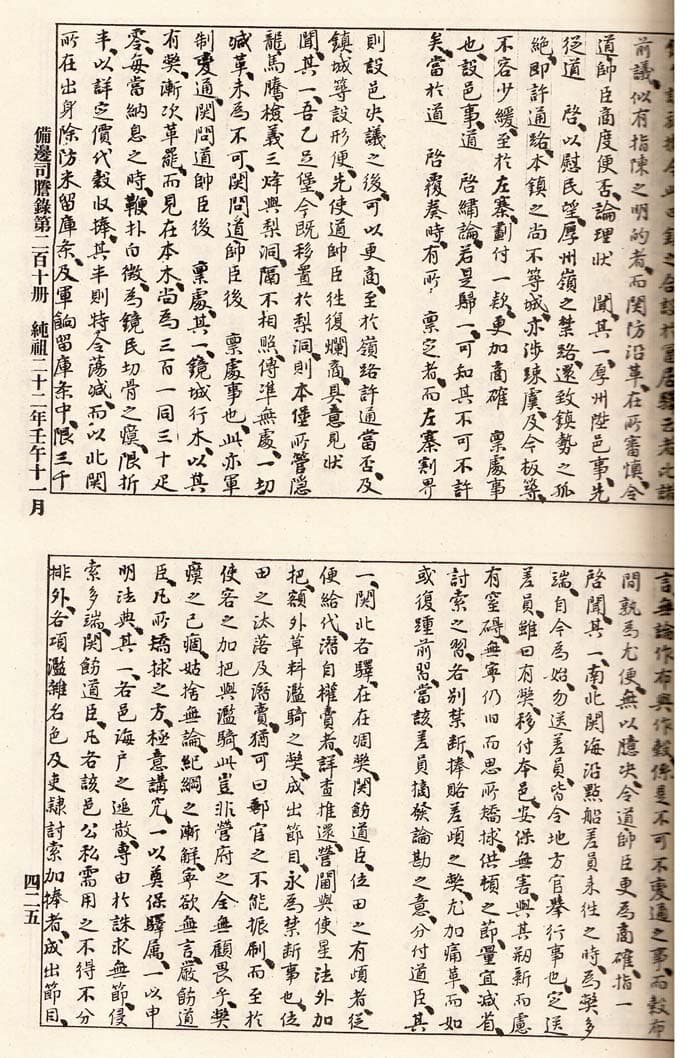 前議似有指陳之明的者而関防沿革在所審愼令
道帥臣商度便否論理狀 聞其一厚州陞邑事先
從道 啓以慰民望厚州嶺之禁路還致鎭勢之孤
絶即許通路本鎭之尚不等城亦涉踈虞及今板築
不容少緩至於左寨劃付一欵更加商確 稟處事
也設邑事道 啓繡論若是歸一可知其不可不許
矣當於道 啓覆奏時有所 稟定者而左寨割界
則設邑決議之後可以更商至於嶺路許通當否及
鎭城等設形便先使道帥臣徃復爛商具意見狀
聞其一吾乙足堡今既移置於梨洞則本堡所管隐
龍馬騰檢義三烽與梨洞隔不相照傳準無處一切
减革未為不可関問道帥臣後 稟處事也此亦軍
制変通関問道帥臣後 稟處其一鏡城行木以其
有獘漸次革罷而見在本木尚為三百一同三十疋
零每當納息之時鞭扑白徵為鏡民切骨之瘼限折
半以詳定價代穀收捧其半則特令蕩减而以此関
所在出身除防米留庫条及軍餉留庫条中限三千
備邊司謄錄第二百十册 純祖二十二年壬午十一月
言無論作布與作穀係是不可不変通之事而穀布
間孰為尤便無以臆决令道帥臣更為商確指一
啓聞其一南北関海沿點船差員来徃之時為獘多
端自今為始勿送差員皆令地方官擧行事也定送
差員雖曰有獘移付本邑安保無害與其刱新而慮
有窒碍無寧仍旧而思所矯捄供頓之節量宜减省
討索之習各別禁断捧賂差頉之獘尤加痛革而如
或復踵前習當該差員摘發論勘之意分付道臣其
一関北各驛在在凋獘関飭道臣位田之有頉者從
便給代潛自權賣者詳查推還營閫與使星法外加
把額外草料濫騎之獘成出節目永為禁断事也位
田之汰落及潛賣猶可曰郵官之不能振刷而至於
使客之加把與濫騎此豈非營府之全無顧畏乎獘
瘼之已痼姑捨無論紀綱之漸解寧欲無言嚴飭道
臣凡所矯捄之方極意講究一以奠保驛属一以申
明法典其一各邑海户之逃散専由於誅求無節侵
索多端関飭道臣凡各該邑公私需用之不得不分
排外各項濫雜名色及吏隷討索加捧者成出節目
四二五